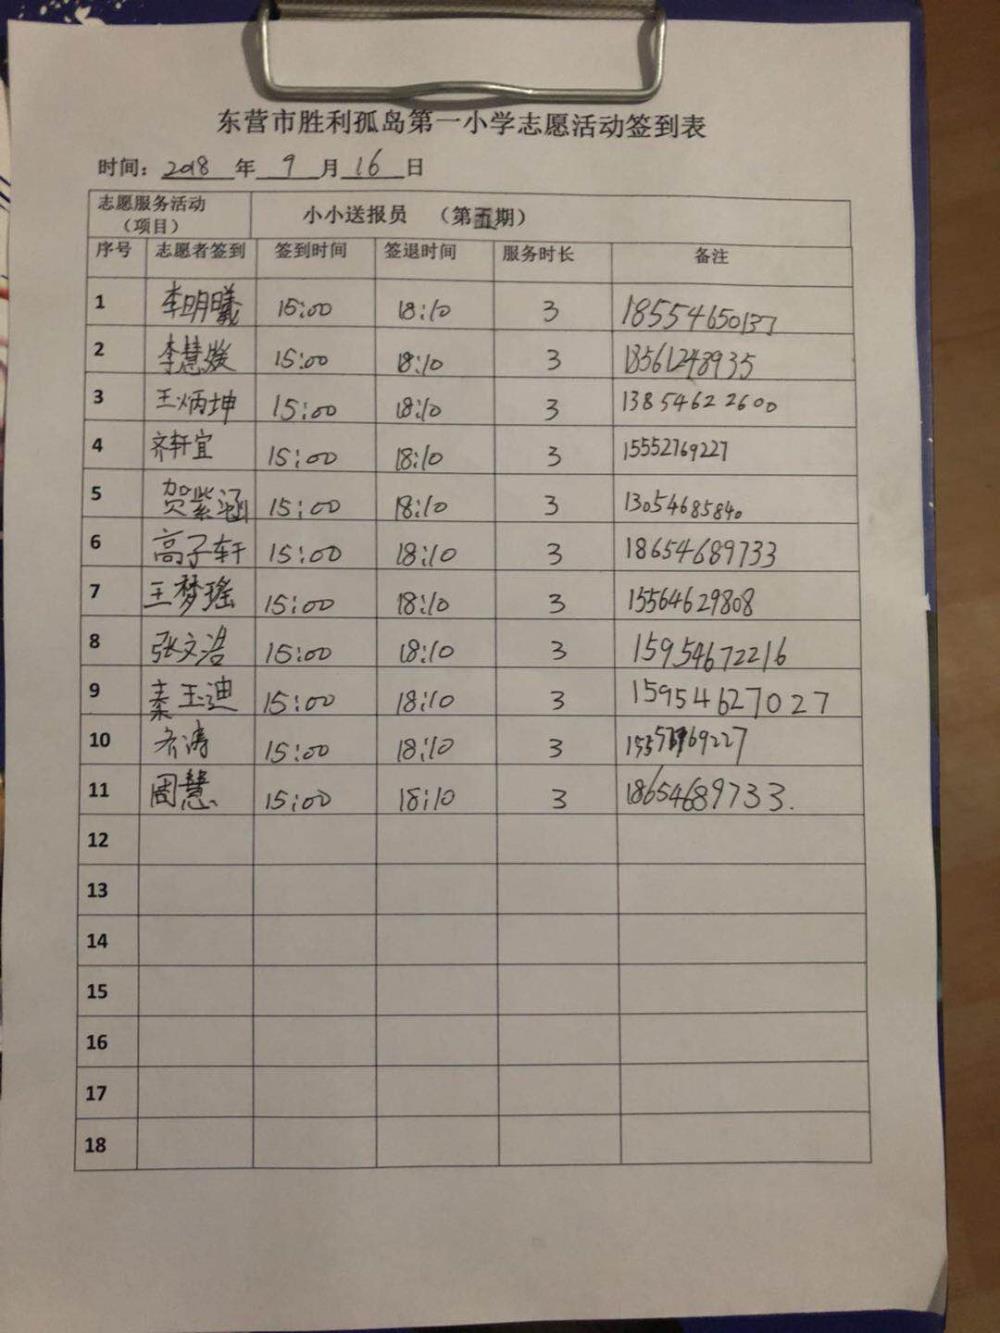 东营市胜利孤岛第一小学志愿活动签到表
时间：2018 年 9 月 16 日
志愿服务活动（项目） 小小送报员 （第五期）
序号 志愿者签到 签到时间 签退时间 服务时长 备注
1 李明曦 15:00 18:10 3 18554650137
2 李慧骏 15:00 18:10 3 18561248935
3 王炳坤 15:00 18:10 3 13854622600
4 齐轩宜 15:00 18:10 3 15552769227
5 贺紫涵 15:00 18:10 3 13054685840
6 高子轩 15:00 18:10 3 18654689733
7 王梦瑶 15:00 18:10 3 15564629808
8 张文浩 15:00 18:10 3 15954672216
9 秦玉迪 15:00 18:10 3 15954627027
10 齐涛 15:00 18:10 3
11 周慧 15:00 18:10 3 18654689733.
12
13
14
15
16
17
18